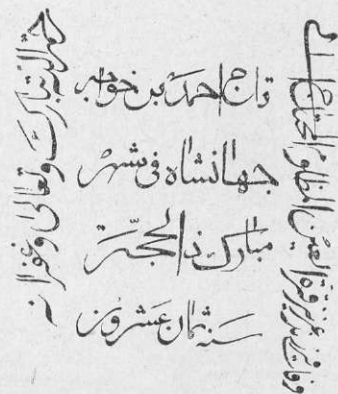 وفات فرزند عزیز قرة العین المظلوم المحتاج الی
تاج احمد بن خواجه
جهانشاه فی شهر
مبارک ذالحجّة
سنه ثمان عشرون
رحمة الله تبارک وتعالی وغفرانه